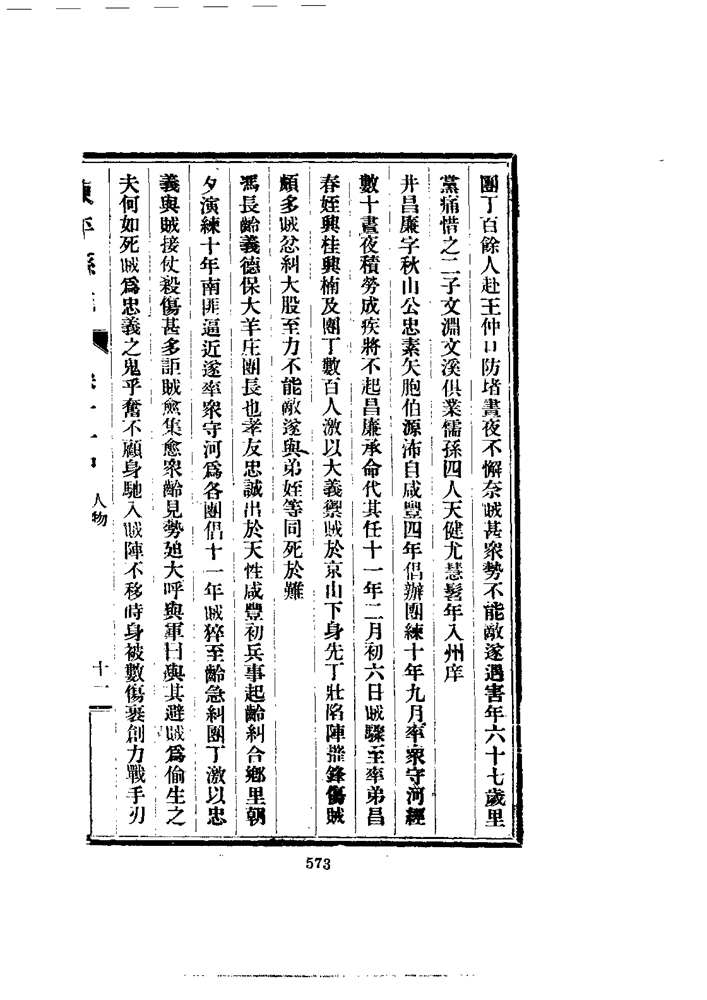 團丁百餘人赴王仲口防堵晝夜不懈奈賊甚衆勢不能敵遂遇害年六十七歲里
黨痛惜之二子文淵文溪俱業儒孫四人天健尤慧髫年入州庠
井昌廉字秋山公忠素矢胞伯源沛自咸豐四年倡辦團練十年九月率衆守河經
數十晝夜積勞成疾將不起昌廉承命代其任十一年二月初六日賊驟至率弟昌
春姪興桂興楠及團丁數百人激以大義禦賊於京山下身先丁壯陷陣摧鋒傷賊
頗多賊忿糾大股至力不能敵遂與弟姪等同死於難
馮長齡義德保大羊庄團長也孝友忠誠出於天性咸豐初兵事起齡糾合鄉里朝
夕演練十年南匪逼近遂率衆守河爲各團倡十一年賊猝至齡急糾團丁激以忠
義與賊接仗殺傷甚多詎賊愈集愈衆齡見勢廹大呼與軍曰與其避賊爲偷生之
夫何如死賊爲忠義之鬼乎奮不顧身馳入賊陣不移時身被數傷裹創力戰手刃
東平縣志
人物
十一
573